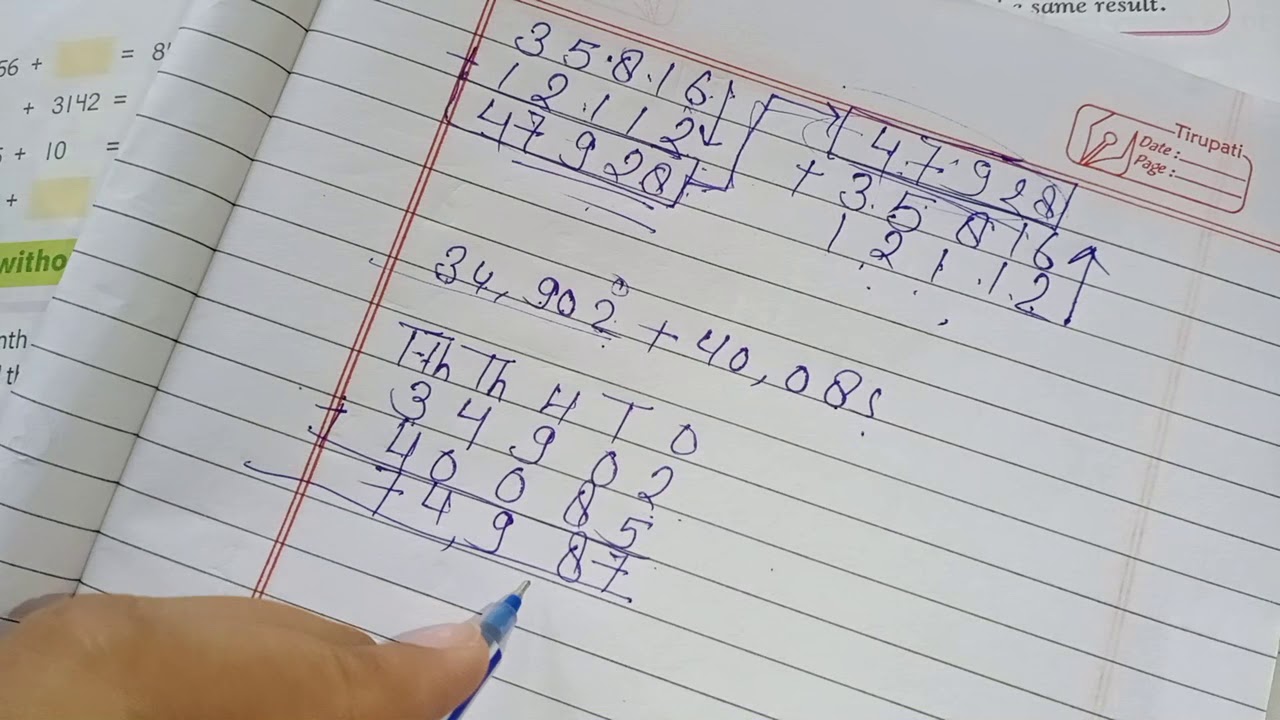 same result.
56 + = 8
+ 3142 =
5 + 10 =
+
witho
nth
Tirupati
Date :
Page :
35816
+ 12112
47928
47928
+ 35816
12112
34,902 + 40,085
Tth Th H T O
3 4 9 0 2
+ 4 0 0 8 5
7 4, 9 8 7